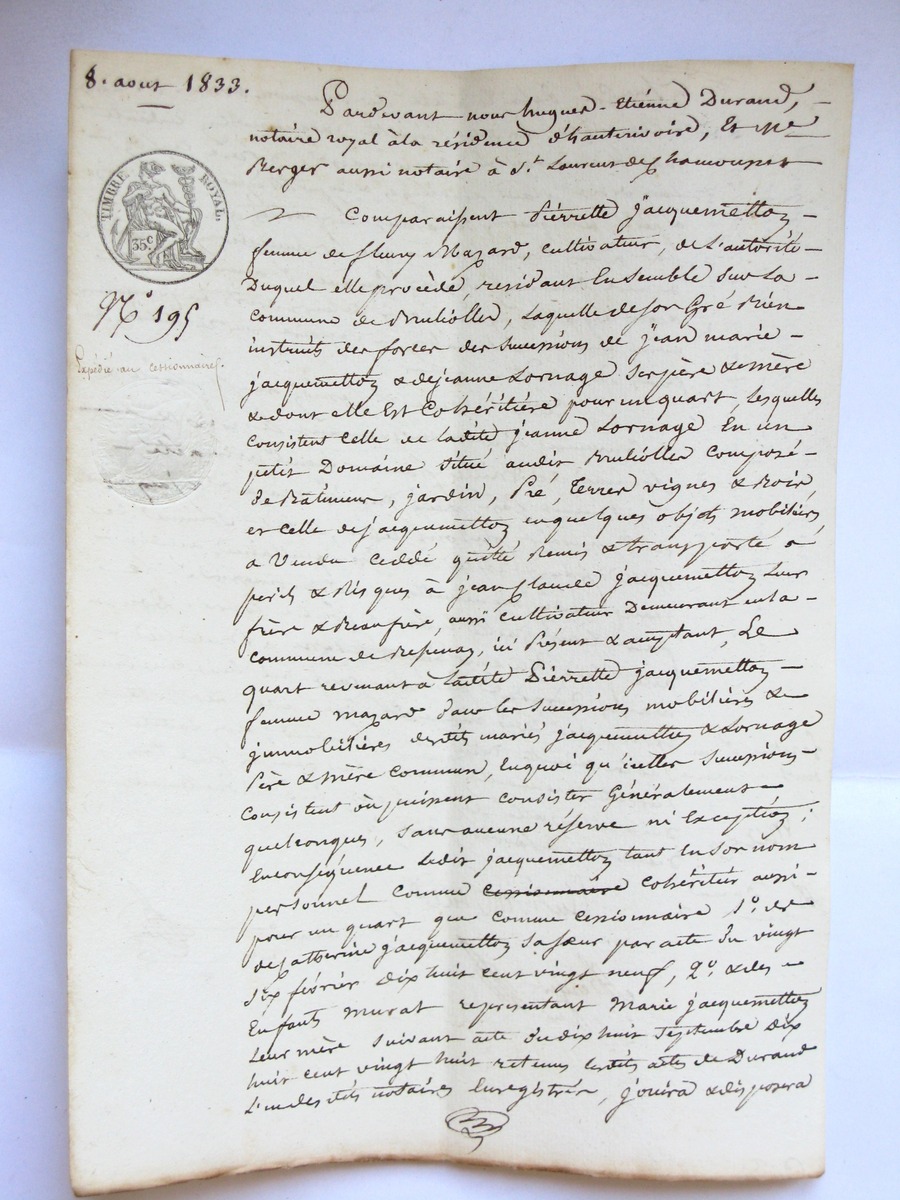 8. aout 1833.
TIMBRE ROYAL
35c
N° 195
Expédié au cessionnaire.
Pardevant nous hugues-Etiénne Durand,
notaire royal à la résidence d'hauterivoire, Et Me
Berger aussi notaire à St. Laurent de Chamousset
Comparaissent Pierrette jacquemetton
femme de fleury Mazard, cultivateur, de L'autorité
Duquel elle procède, résidant Ensemble sur La
commune de Brulliolles, Laquelle de son Gré Bien
instruite des forces des successions de jean marie
jacquemetton & de jeanne Lornage ses père & mère
& dont elle Est Cohéritière pour un quart, Lesquelles
Consistent Celle de Ladite jeanne Lornage En un
petit Domaine Situé audit Brulliolles Composé
de Bâtiments, jardin, Pré, Terres vignes & Bois,
et Celle de jacquemetton en quelques objets mobiliers,
a Vendu Ceddé quitté Remis & transporté à
perils & Risques à jean Claude jacquemetton Leur
frère & Beaufrère, aussi cultivateur Demeurant en la
commune de Bessenay, ici Présent & acceptant, Le
quart revenant à Ladite Pierrette jacquemetton
femme mazard dans les successions mobilières &
immobilières desdits mariés jacquemetton & Lornage
Père & Mère Commun, Enquoi qu'icelles successions
Consistent ou puissent consister Généralement
quelconques, sans aucune réserve ni Exception;
Enconséquence Ledit jacquemetton tant En son nom
personnel comme cessionnaire cohéritier aussi
pour un quart que comme cessionnaire 1°. de
de Catherine jacquemetton sa sœur par acte du vingt
six février dix huit cent vingt neuf, 2°. & des
Enfants Murat representant Marie jacquemetton
Leur mère suivant acte du dix huit septembre dix
huit cent vingt huit retenus lesdits actes de Durand
L'un desdits notaires Enregistrés, jouira & disposera